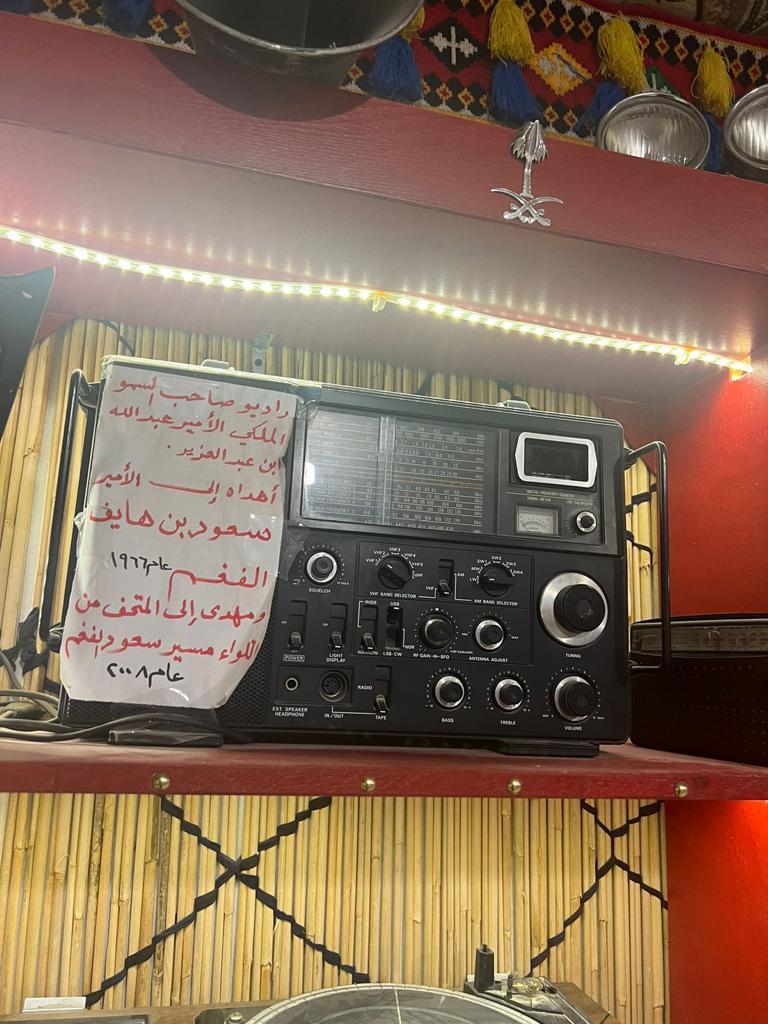 راديو صاحب السمو
الملكي الأمير عبدالله
ابن عبدالعزيز.
أهداه إلى الأمير
سعود بن هايف
الفغم عام ١٩٦٦
ومهدى إلى المتحف من
اللواء مسير سعود الفغم
عام ٢٠٠٨
DIGITAL FREQUENCY COUNTER
SIGNAL METER
SQUELCH
VHF1 VHF2 VHF3 VHF4 VHF5 UHF
VHF BAND SELECTOR
AM
VHF
LW MW SW1 SW2 SW3 SW4
AM BAND SELECTOR
TUNING
POWER
LIGHT DISPLAY
WIDE
NARROW
USB
LSB·CW
NOR
RF GAIN BFO
ANTENNA ADJUST
EXT. SPEAKER
HEADPHONE
IN/OUT
RADIO
TAPE
BASS
TREBLE
VOLUME